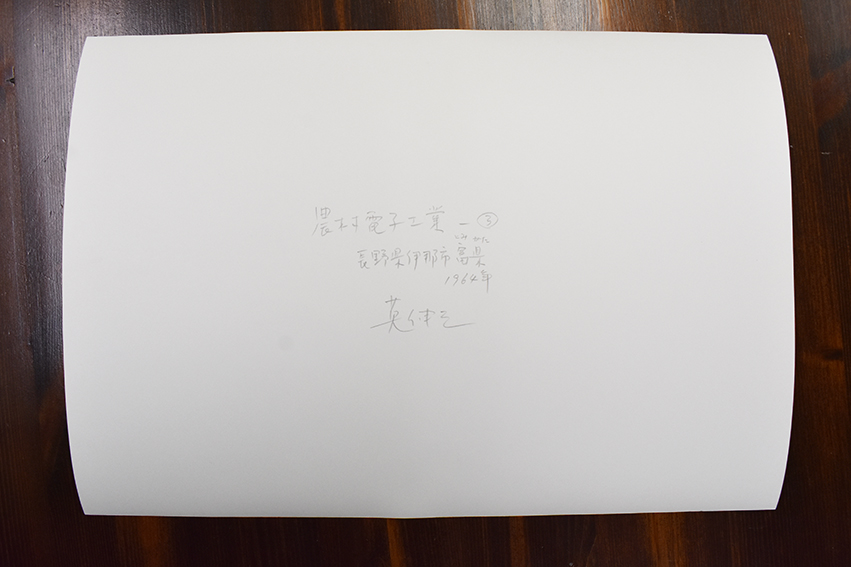 農村電子工業 - ③
長野県伊那市富県
1964年
英伸三